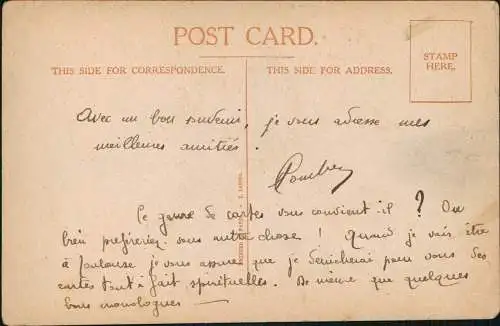 POST CARD.
STAMP
HERE.
THIS SIDE FOR CORRESPONDENCE.
THIS SIDE FOR ADDRESS.
Avec un bon souvenir, je vous adresse mes
meilleures amitiés.
Ce genre de cartes vous convient-il ? Ou
bien préfèreriez-vous autre chose ! Quand je vais être
à Toulouse je vous assure que je dénicherai pour vous des
cartes tout à fait spirituelles. De même que quelques
bons monologues —